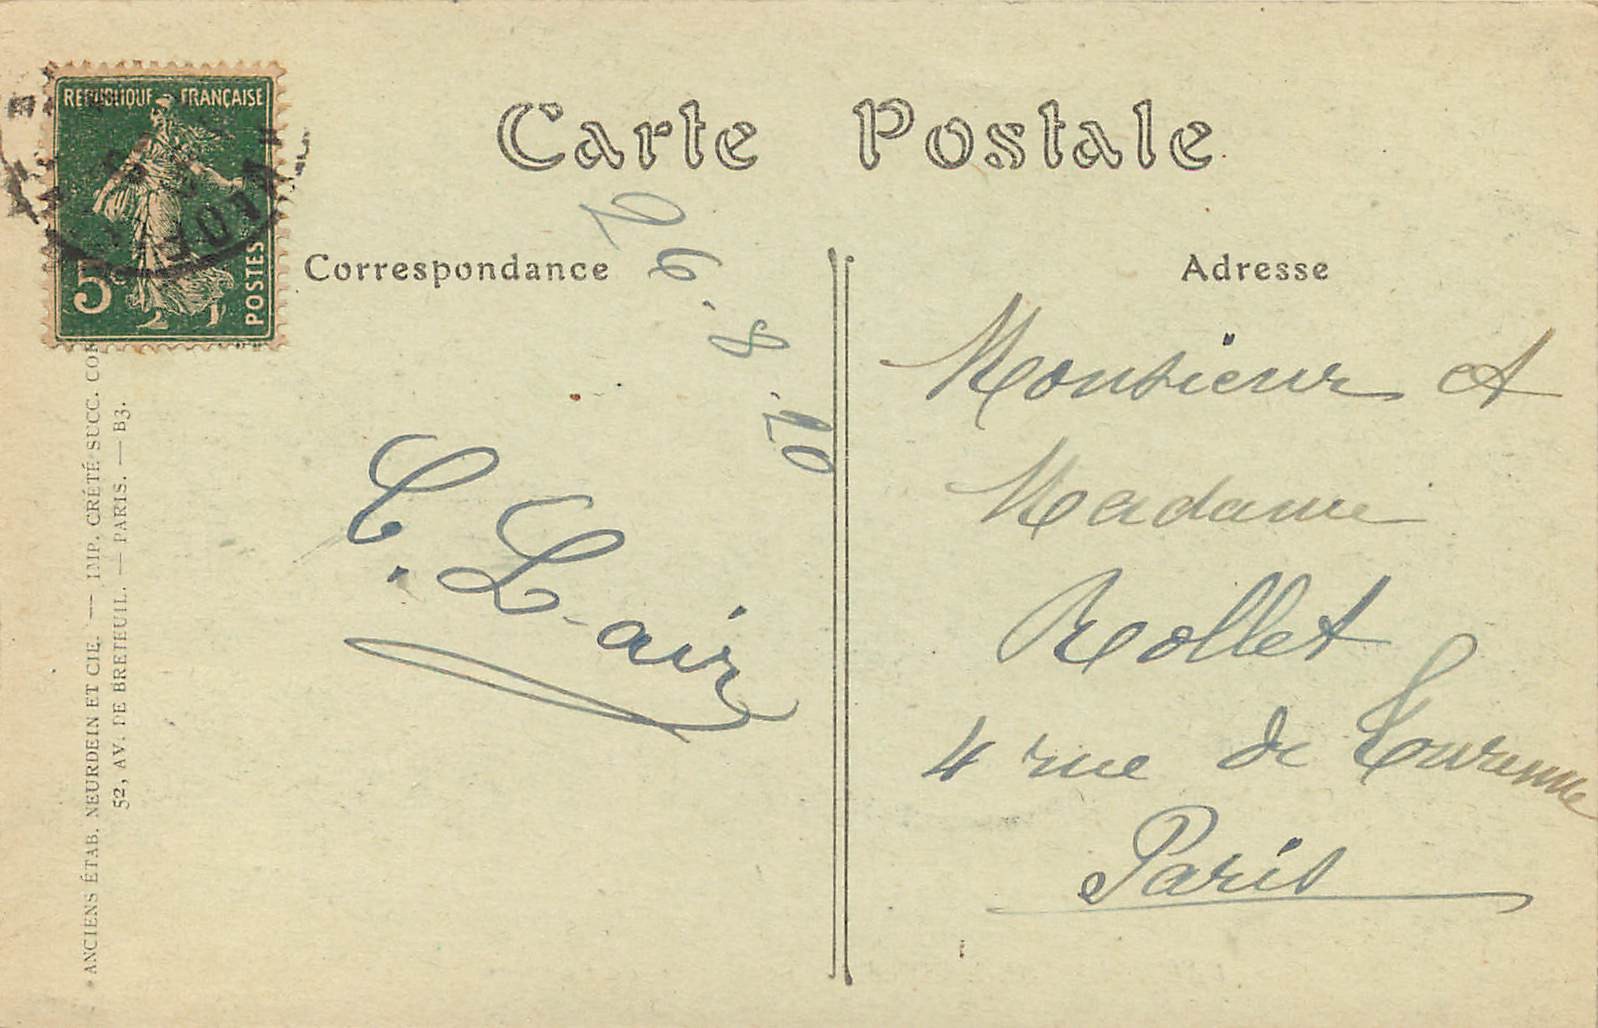 Carte Postale
REPUBLIQUE FRANÇAISE
5c
POSTES
Correspondance
Adresse
26.8.20
C. Lair
Monsieur et
Madame
Rollet
4 rue de Turenne
Paris
ANCIENS ÉTAB. NEURDEIN ET CIE. — IMP. CRÉTÉ SUCC. COR
52, AV. DE BRETEUIL. — PARIS. — B3.